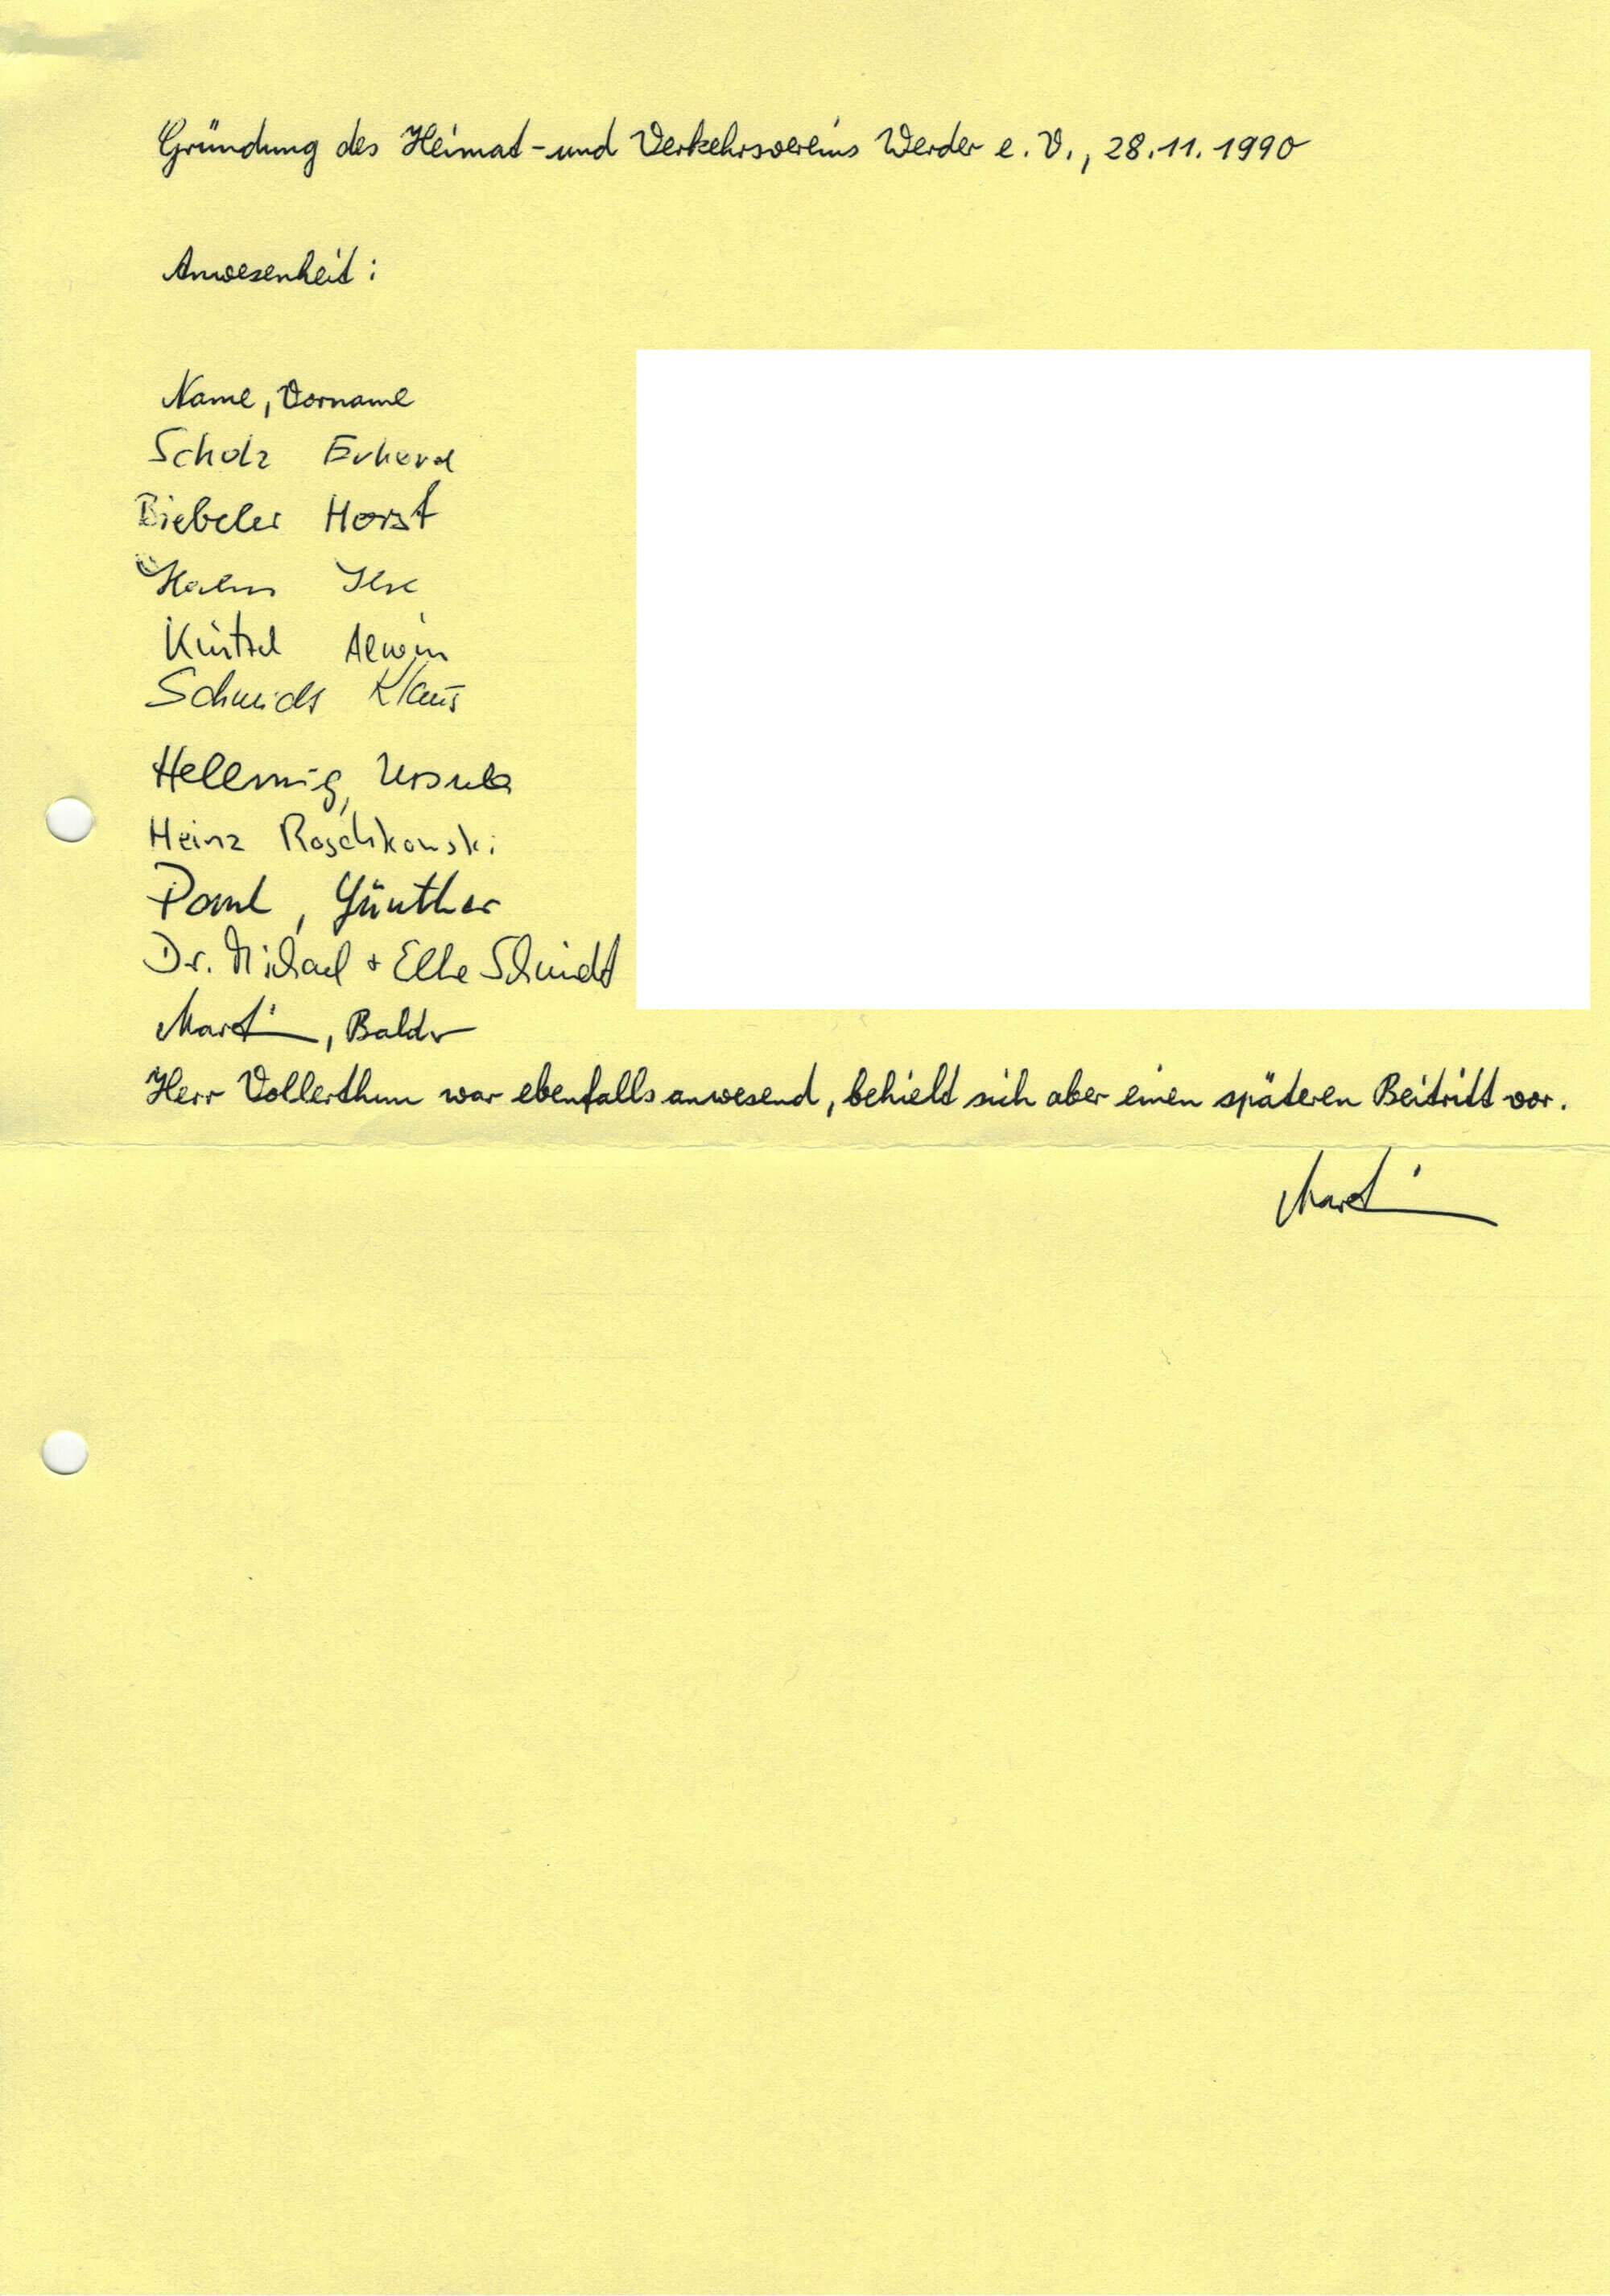 Gründung des Heimat- und Verkehrsvereins Werder e. V., 28.11.1990
Anwesenheit:
Name, Vorname
Scholz Erhard
Biebeler Horst
Hahn Ilse
Alwin
Schmidt Klaus
Hellmig, Ursula
Heinz Roschkowski
Paul, Günther
Dr. Michael + Elke Schmidt
Martin, Baldur
Herr Vollerthun war ebenfalls anwesend, behielt sich aber einen späteren Beitritt vor.
Martin